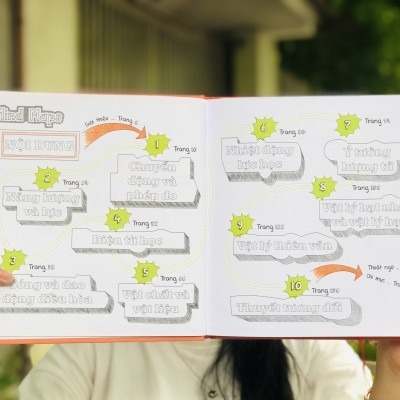 Mind Maps
NỘI DUNG
Giới thiệu - Trang 6
1
Trang 10
Chuyển
động và
phép đo
2
Trang 24
Năng lượng
và lực
4
Trang
Điện từ học
3
Trang
Sóng và dao
động điều hòa
5
Trang
Vật chất và
vật liệu
6
Trang
Nhiệt động
lực học
7
Trang
Ý tưởng
lượng tử
8
Trang
Vật lý hạt nhân
và vật lý hạt
9
Trang
Vật lý thiên văn
10
Trang
Thuyết tương đối
Thuật ngữ -
Chỉ mục -